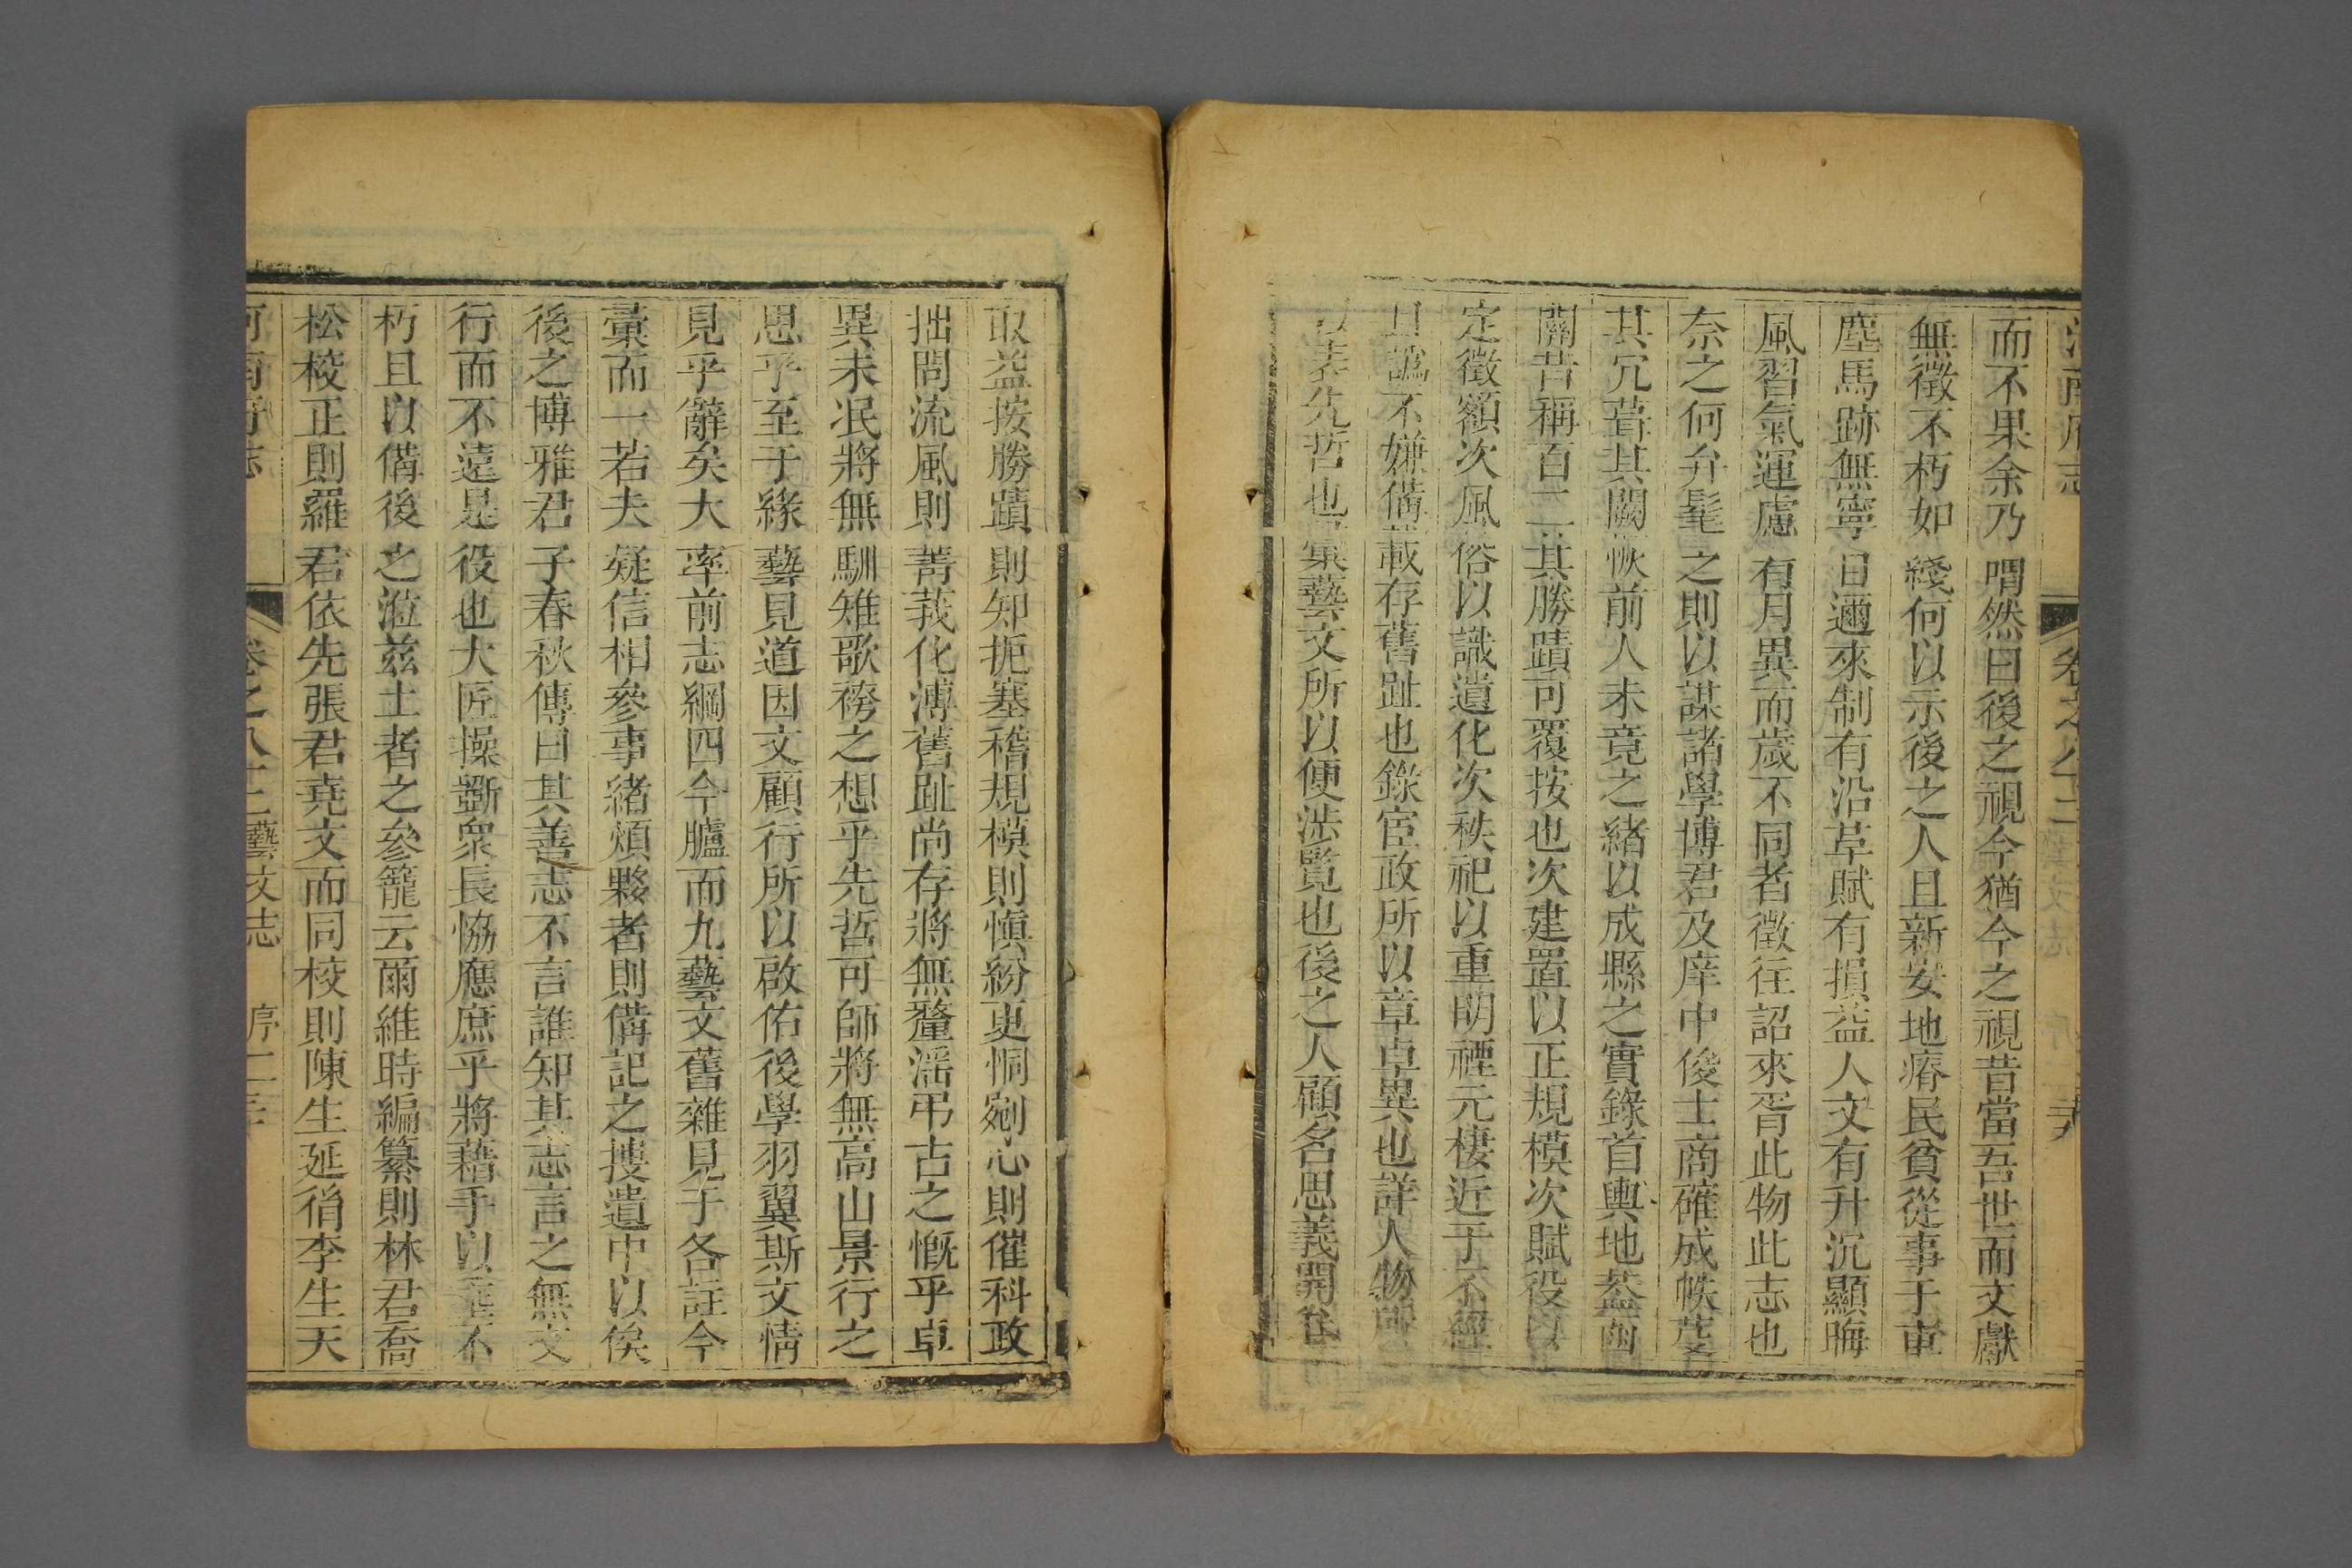 而不果余乃喟然曰後之視今猶今之視昔當吾世而文獻
無徵不朽如綫何以示後之人且新安地瘠民貧從事于車
塵馬跡無寧日邇來制有沿革賦有損益人文有升沉顯晦
風習氣運慮有月異而歲不同者徵往詔來胥此物此志也
奈之何弁髦之則以謀諸學博君及庠中俊士商確成帙芟
其冗葺其闕恢前人未竟之緒以成縣之實錄首輿地葢函
關昔稱百二其勝蹟可覆按也次建置以正規模次賦役以
定徵額次風俗以識遺化次秩祀以重明禋元棲近于不經
且譌不嫌備載存舊趾也錄宦政所以章卓異也詳人物所
以表先哲也彙藝文所以便涉覽也後之人顧名思義開卷
取益按勝蹟則知扼塞稽規模則愼紛更恫剜心則催科政
拙問流風則菁莪化溥舊趾尚存將無螿滛弔古之慨乎卓
異未泯將無馴雉歌袴之想乎先哲可師將無高山景行之
思乎至于緣藝見道因文顧行所以啟佑後學羽翼斯文情
見乎辭矣大率前志綱四今臚而九藝文舊雜見于各註今
彙而一若夫疑信相參事緒煩夥者則備記之摟遺中以俟
後之博雅君子春秋傳曰其善志不言誰知其志言之無文
行而不遠是役也大匠操斵衆長恊應庶乎將藉手以垂不
朽且以備後之涖兹土者之參籠云爾維時編纂則林君喬
松校正則羅君依先張君堯文而同校則陳生延䘵李生天
河南府志 卷之八十二藝文志 序二 三十